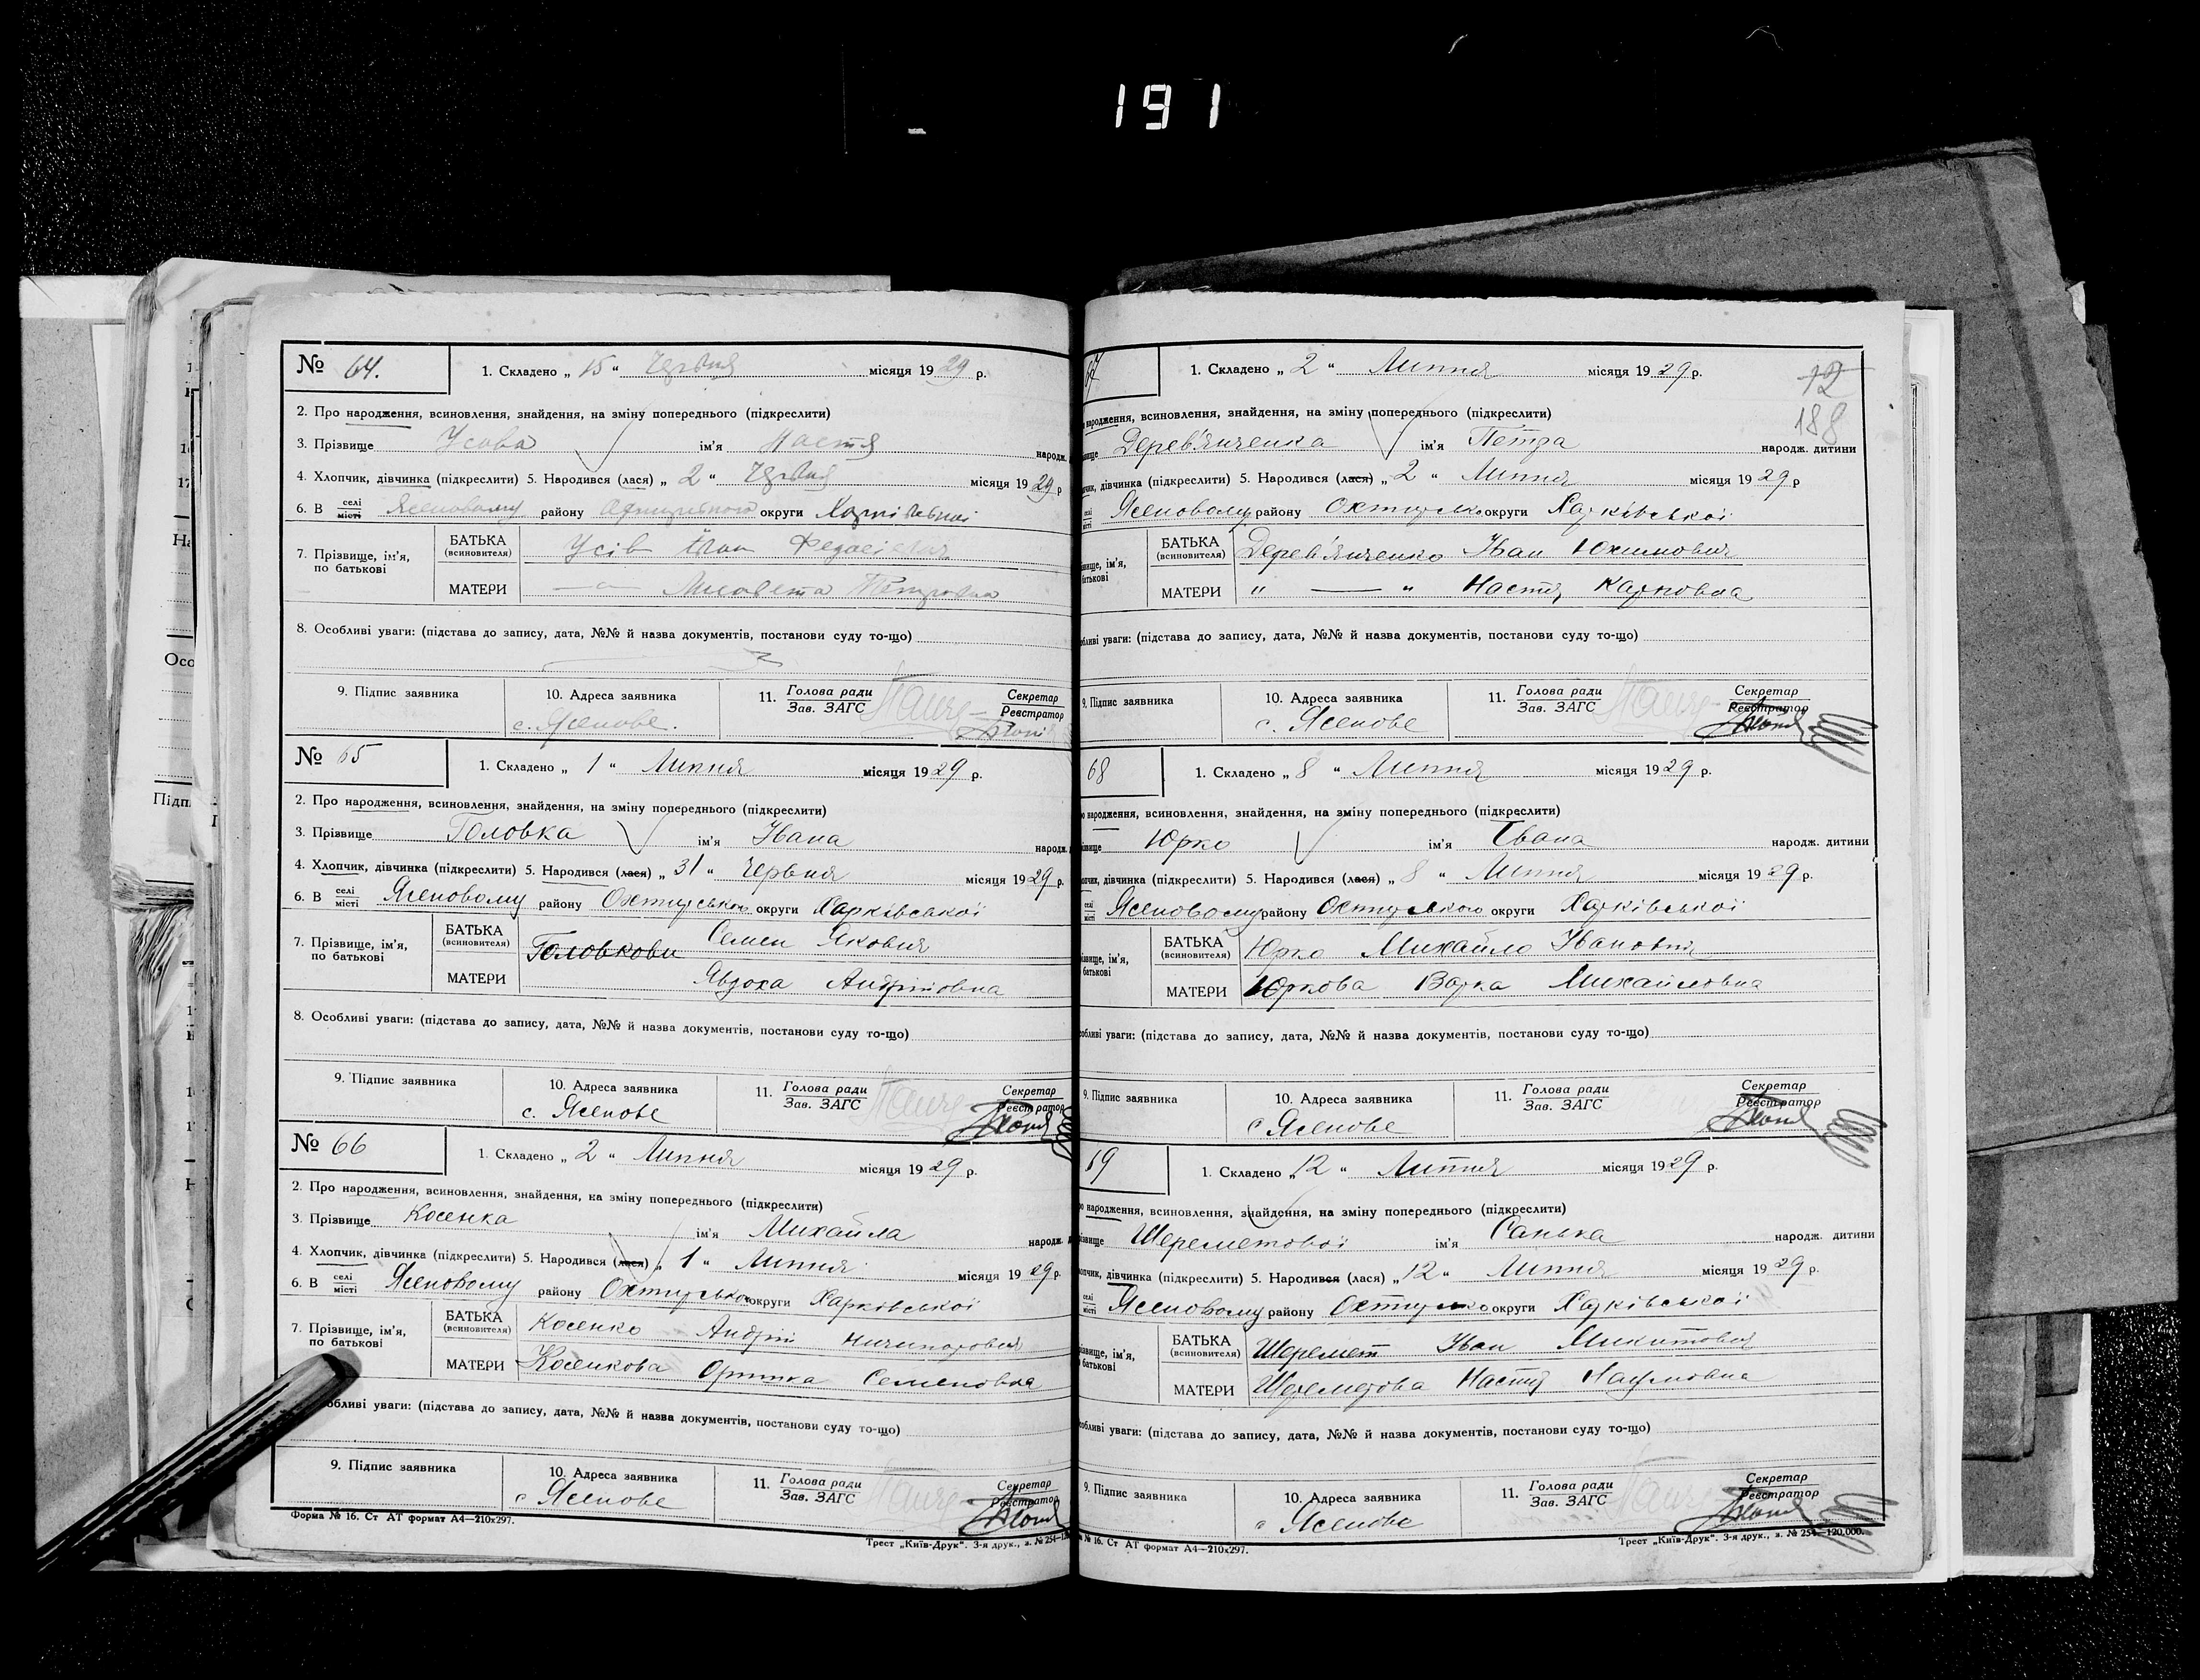 191
№ 64. 1. Складено „ 15 “ Червня місяця 1929 р.
2. Про народження, всиновлення, знайдення, на зміну попереднього (підкреслити)
3. Прізвище Усова ім'я Настя народж.
4. Хлопчик, дівчинка (підкреслити) 5. Народився (лася) „ 2 “ Червня місяця 1929 р
6. В селі місті Ясеновому району округи Харківської
7. Прізвище, ім'я, по батькові
БАТЬКА (всиновителя) Усів Іван
МАТЕРИ —"— Лисавета Петровна
8. Особливі уваги: (підстава до запису, дата, №№ й назва документів, постанови суду то-що)
9. Підпис заявника 10. Адреса заявника 11. Голова ради Зав. ЗАГС Секретар Реєстратор
с. Ясенове.
№ 65 1. Складено „ 1 “ Липня місяця 1929 р.
2. Про народження, всиновлення, знайдення, на зміну попереднього (підкреслити)
3. Прізвище Головка ім'я Івана народж.
4. Хлопчик, дівчинка (підкреслити) 5. Народився (лася) „ 31 “ Червня місяця 1929 р.
6. В селі місті Ясеновому району Охтирського округи Харківської
7. Прізвище, ім'я, по батькові
БАТЬКА (всиновителя) Головкови Семен Якович
МАТЕРИ Явдоха Андріївна
8. Особливі уваги: (підстава до запису, дата, №№ й назва документів, постанови суду то-що)
9. Підпис заявника 10. Адреса заявника 11. Голова ради Зав. ЗАГС Секретар Реєстратор
с. Ясенове
№ 66 1. Складено „ 2 “ Липня місяця 1929 р.
2. Про народження, всиновлення, знайдення, на зміну попереднього (підкреслити)
3. Прізвище Косенка ім'я Михайла народж.
4. Хлопчик, дівчинка (підкреслити) 5. Народився (лася) „ 1 “ Липня місяця 1929 р.
6. В селі місті Ясеновому району Охтирсько округи Харківської
7. Прізвище, ім'я, по батькові
БАТЬКА (всиновителя) Косенко Андрій Ничипорович
МАТЕРИ Косенкова Оришка Семеновна
обливі уваги: (підстава до запису, дата, №№ й назва документів, постанови суду то-що)
9. Підпис заявника 10. Адреса заявника 11. Голова ради Зав. ЗАГС Секретар Реєстратор
с Ясенове
Форма № 16. Ст АТ формат А4—210х297. Трест „Київ-Друк“. 3-я друк., з. № 254—12
67 1. Складено „ 2 “ Липня місяця 1929 р.
12
188
народження, всиновлення, знайдення, на зміну попереднього (підкреслити)
Дерев'янченка ім'я Петра народж. дитини
чик, дівчинка (підкреслити) 5. Народився (лася) „ 2 “ Липня місяця 1929 р
Ясеновому району Охтирсько округи Харківської
БАТЬКА (всиновителя) Дерев'янченко Іван Юхимович
МАТЕРИ " — " Настя Карповна
обливі уваги: (підстава до запису, дата, №№ й назва документів, постанови суду то-що)
9. Підпис заявника 10. Адреса заявника 11. Голова ради Зав. ЗАГС Секретар Реєстратор
с. Ясенове
68 1. Складено „ 8 “ Липня місяця 1929 р.
народження, всиновлення, знайдення, на зміну попереднього (підкреслити)
Юрко ім'я Івана народж. дитини
чик, дівчинка (підкреслити) 5. Народився (лася) „ 8 “ Липня місяця 1929 р.
Ясеновому району Охтирського округи Харківської
БАТЬКА (всиновителя) Юрко Михайло Іванович
МАТЕРИ Юркова Варка Михайловна
обливі уваги: (підстава до запису, дата, №№ й назва документів, постанови суду то-що)
9. Підпис заявника 10. Адреса заявника 11. Голова ради Зав. ЗАГС Секретар Реєстратор
с Ясенове
69 1. Складено „ 12 “ Липня місяця 1929 р.
народження, всиновлення, знайдення, на зміну попереднього (підкреслити)
Шереметової ім'я Санька народж. дитини
опчик, дівчинка (підкреслити) 5. Народився (лася) „ 12 “ Липня місяця 1929 р.
Ясеновому району Охтирсько округи Харківської
БАТЬКА (всиновителя) Шеремет Іван Микитович
МАТЕРИ Шереметова Настя Наумовна
обливі уваги: (підстава до запису, дата, №№ й назва документів, постанови суду то-що)
9. Підпис заявника 10. Адреса заявника 11. Голова ради Зав. ЗАГС Секретар Реєстратор
с Ясенове
№ 16. Ст АТ формат А4—210х297. Трест „Київ-Друк“. 3-я друк., з. № 254—120.000.